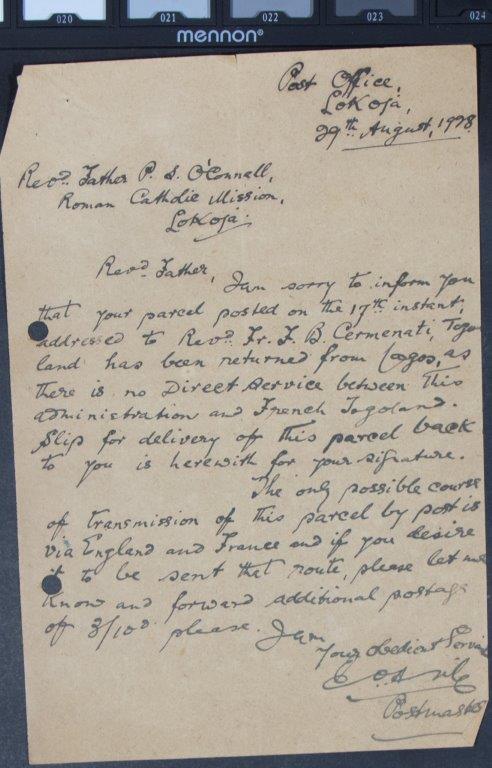 020 021 022 023 024
mennon®
Post Office,
Lokoja,
29th August, 1928
Revd. Father P. S. O'Connell,
Roman Catholic Mission,
Lokoja.
Revd Father,
I am sorry to inform you
that your parcel posted on the 17th instant,
addressed to Revd. Fr. F. B. Cermenati, Togo
land has been returned from Lagos, as
there is no Direct service between this
administration and French Togoland.
Slip for delivery of this parcel back
to you is herewith for your signature.
The only possible course
of transmission of this parcel by post is
via England and France and if you desire
it to be sent that route, please let me
know and forward additional postage
of 3/10d. please. I am
Your obedient Servant
Postmaster